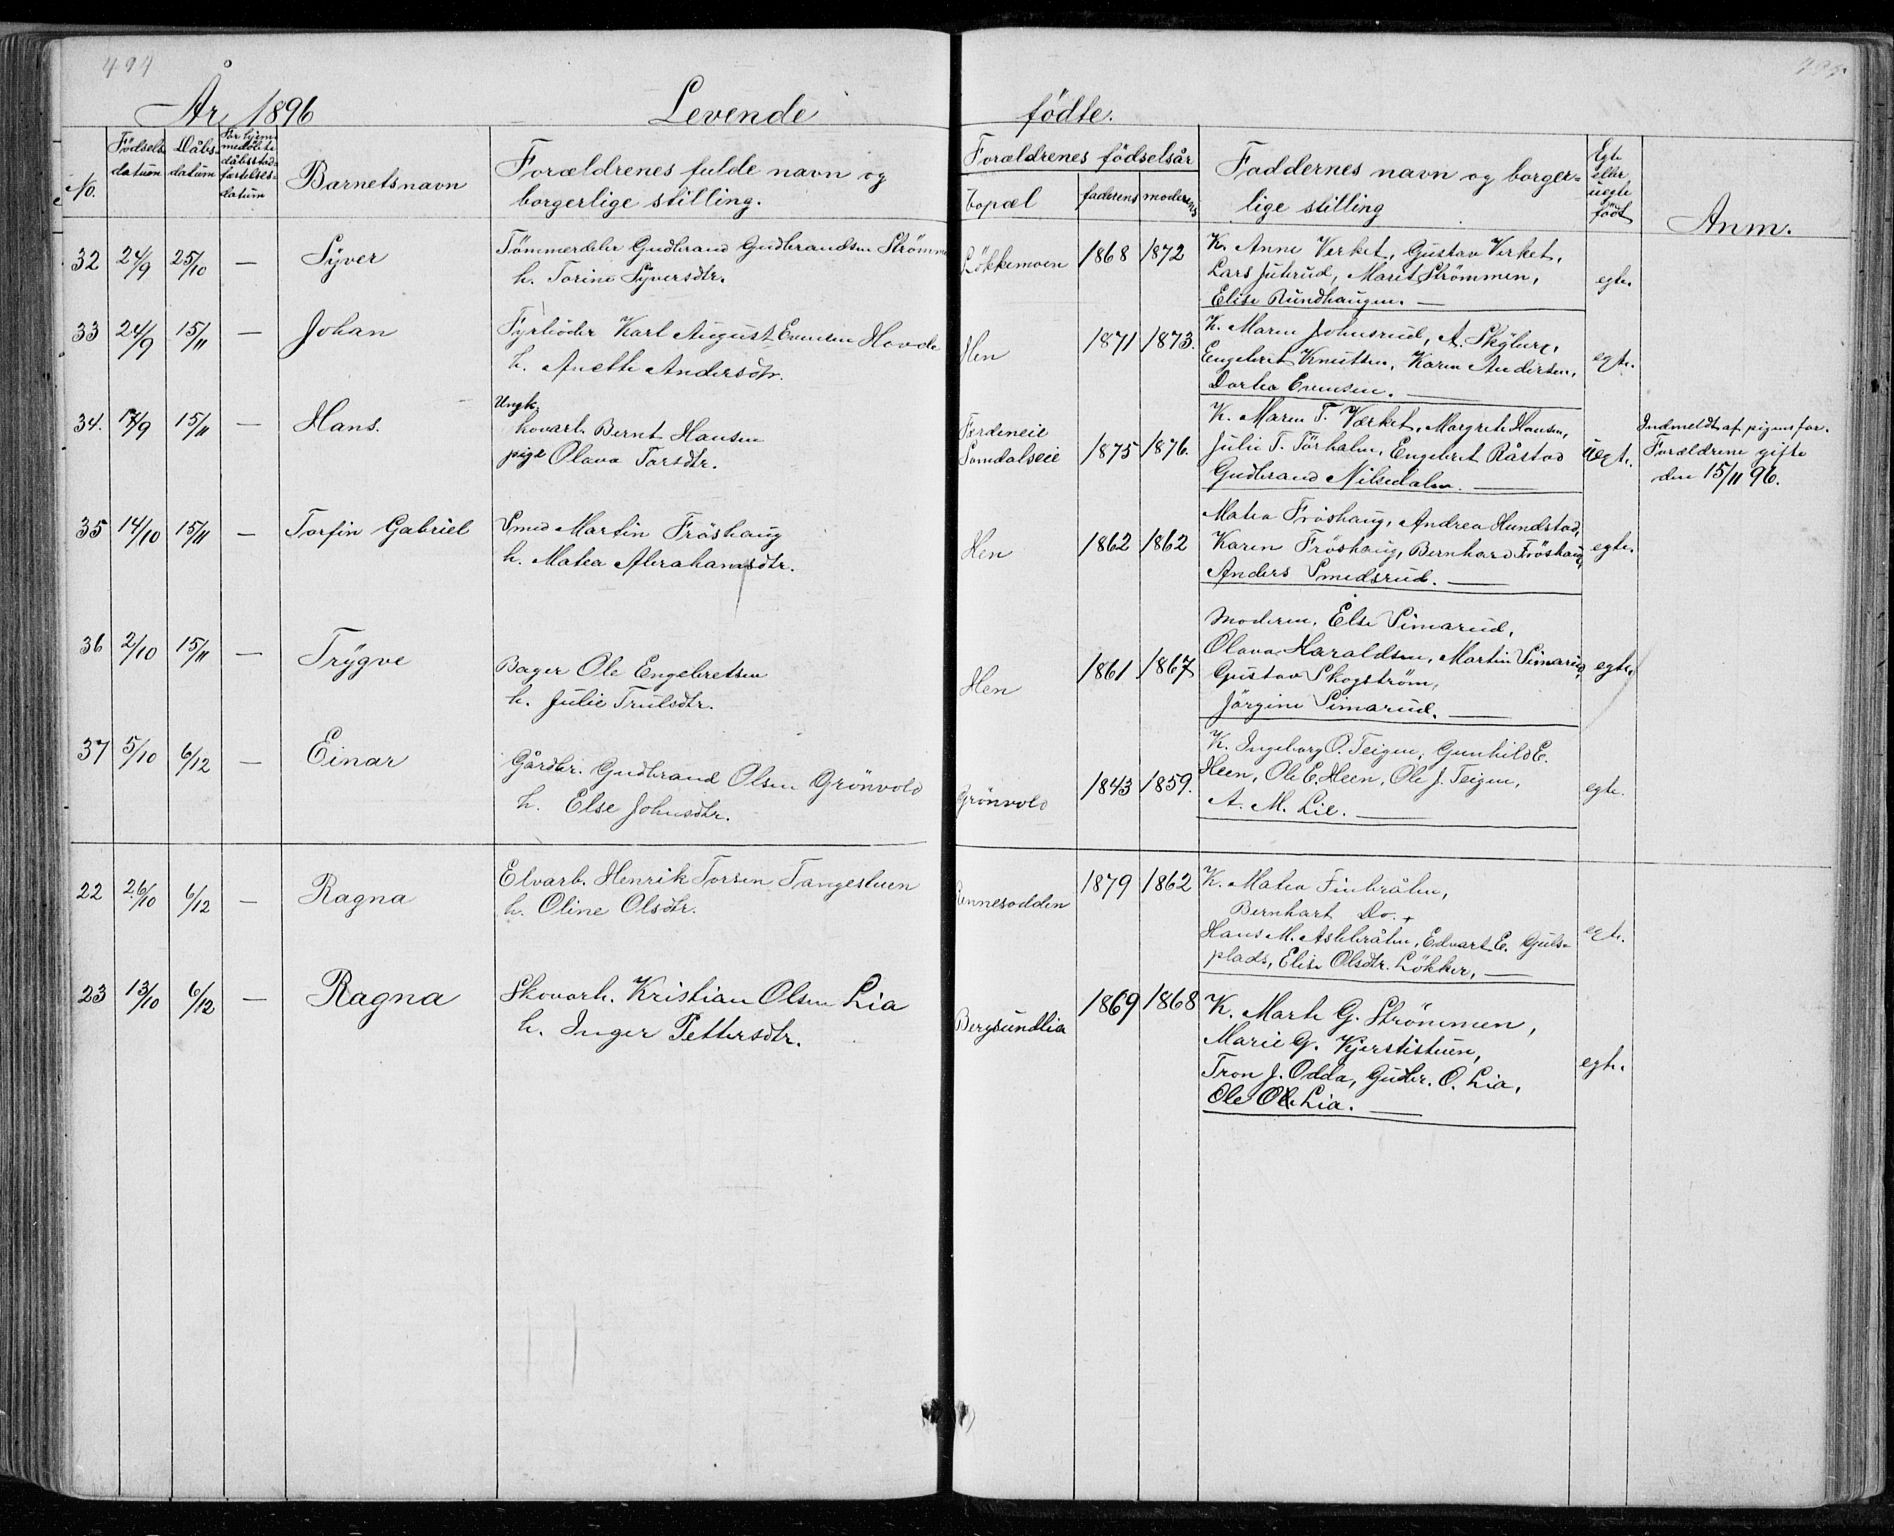 494
År 1896 Levende fødte.
No. Fødsels datum Dåbs- datum Barnetsnavn Forældrenes fulde navn og borgerlige stilling. Forældrenes fødselsår Bopæl faderens moderens Faddernes navn og borger= lige stilling Egte eller uegte født Anm.
32 24/9 25/10 — Syver Tömmerdeler Gudbrand Gudbrandsen Strømmen
h. Torine Syversdtr.
Løkkemoen 1868 1872 K. Anne Verket, Gustav Verket,
Lars Juterud, Marit Strømmen,
Elise Rundhaugen. — egte.
33 24/9 15/11 — Johan Fyrbøder Karl August Evensen Hovde
h. Anette Andersdtr.
Hen 1871 1873. K. Maren Johnsrud, A. Skjüberg,
Engebret Knutsen, Karen Andersen,
Dorthea Evensen. — egte.
34. 17/9 15/11 — Hans. Ungk.
Skovarb. Bernt Hansen
pige Olava Torsdtr.
Færdeneie
Somdalseie 1875 1876. K. Maren T. Værket, Margrete Hansen,
Julie T. Törhalm, Engebret Råstad
Gudbrand Nilsedalen. — üegte.
Indmeldt af pigens far.
Forældrene gifte
den 15/11 96.
35 14/10 15/11 — Torfin Gabriel Smed Martin Fröshaug
h. Matea Abrahamsdtr.
Hen 1862 1862 Matea Fröshaug, Andrea Hundstad,
Karen Fröshaug, Bernhard Fröshaug,
Anders Smedsrud. — egte.
36 2/10 15/11 — Trygve Bager Ole Engebretsen
h. Julie Trulsdtr.
Hen 1861 1867 Moderen, Else Simarud,
Olava Haraldsen, Martin Simarud,
Gustav Skogström,
Jörgine Simarud. — egte.
37 5/10 6/12 — Einar Gårdbr. Gudbrand Olsen Grönvold
h. Else Johnsdtr.
Grönvold 1843 1859. K. Ingeborg O. Teigen, Gunhild E.
Heen, Ole E. Heen, Ole J. Teigen,
A. M. Lie. — egte.
22 26/10 6/12 — Ragna Elvarb. Henrik Torsen Tangestuen
h. Oline Olsdtr.
Ennesodden 1879 1862 K. Matea Finbråten,
Bernhart Do.
Hans M. Askbråten, Edvart E. Guls-
plads, Elise Olsdtr. Løkker, — egte.
23 13/10 6/12 — Ragna Skovarb. Kristian Olsen Lia
h. Inger Pettersdtr.
Bergsundlia 1869 1868 K. Marte G. Strömmen,
Marie G. Kjerstistuen,
Tron J. Odda, Gudbr. O. Lia,
Ole O. Lia. — egte.